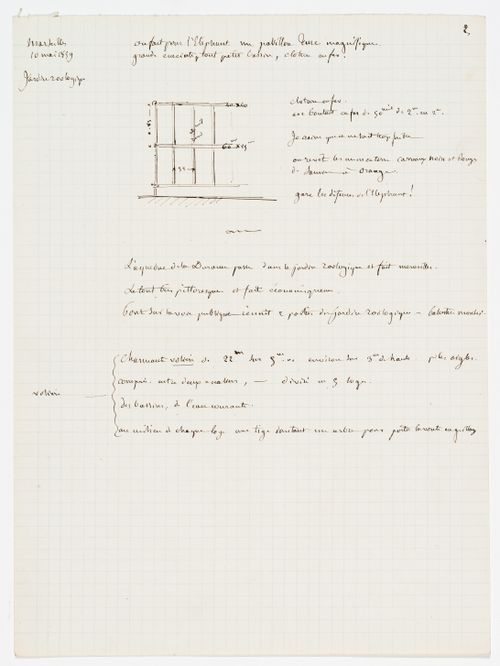 2.
Marseille
10 mai 1859
Jardin zoologique
on fait pour l'Elephant un pavillon turc magnifique.
grande enceinte, tout petit bassin, cloture en fer!
cloture en fer.
arc boutant en fer de 50 m/m de 2m en 2m.
Je crains que ce ne soit trop faible
on revoit les immenses carreaux noirs et rouges
de à orange.
gare les défenses de l'Elephant!
L'aqueduc de la Durance passe dans le jardin zoologique et fait merveilles.
Le tout très pittoresque et fait économiquement.
Pont sur la voie publique réunit 2 parties du jardin zoologique —
volière
Charmant volière de 22m sur 5m environ sur 3m de haut.
compris entre deux — divisé en 5 loges.
des bassins, de l'eau courante.
au milieu de chaque loge une tige imitant un arbre pour porter la voute en grillage